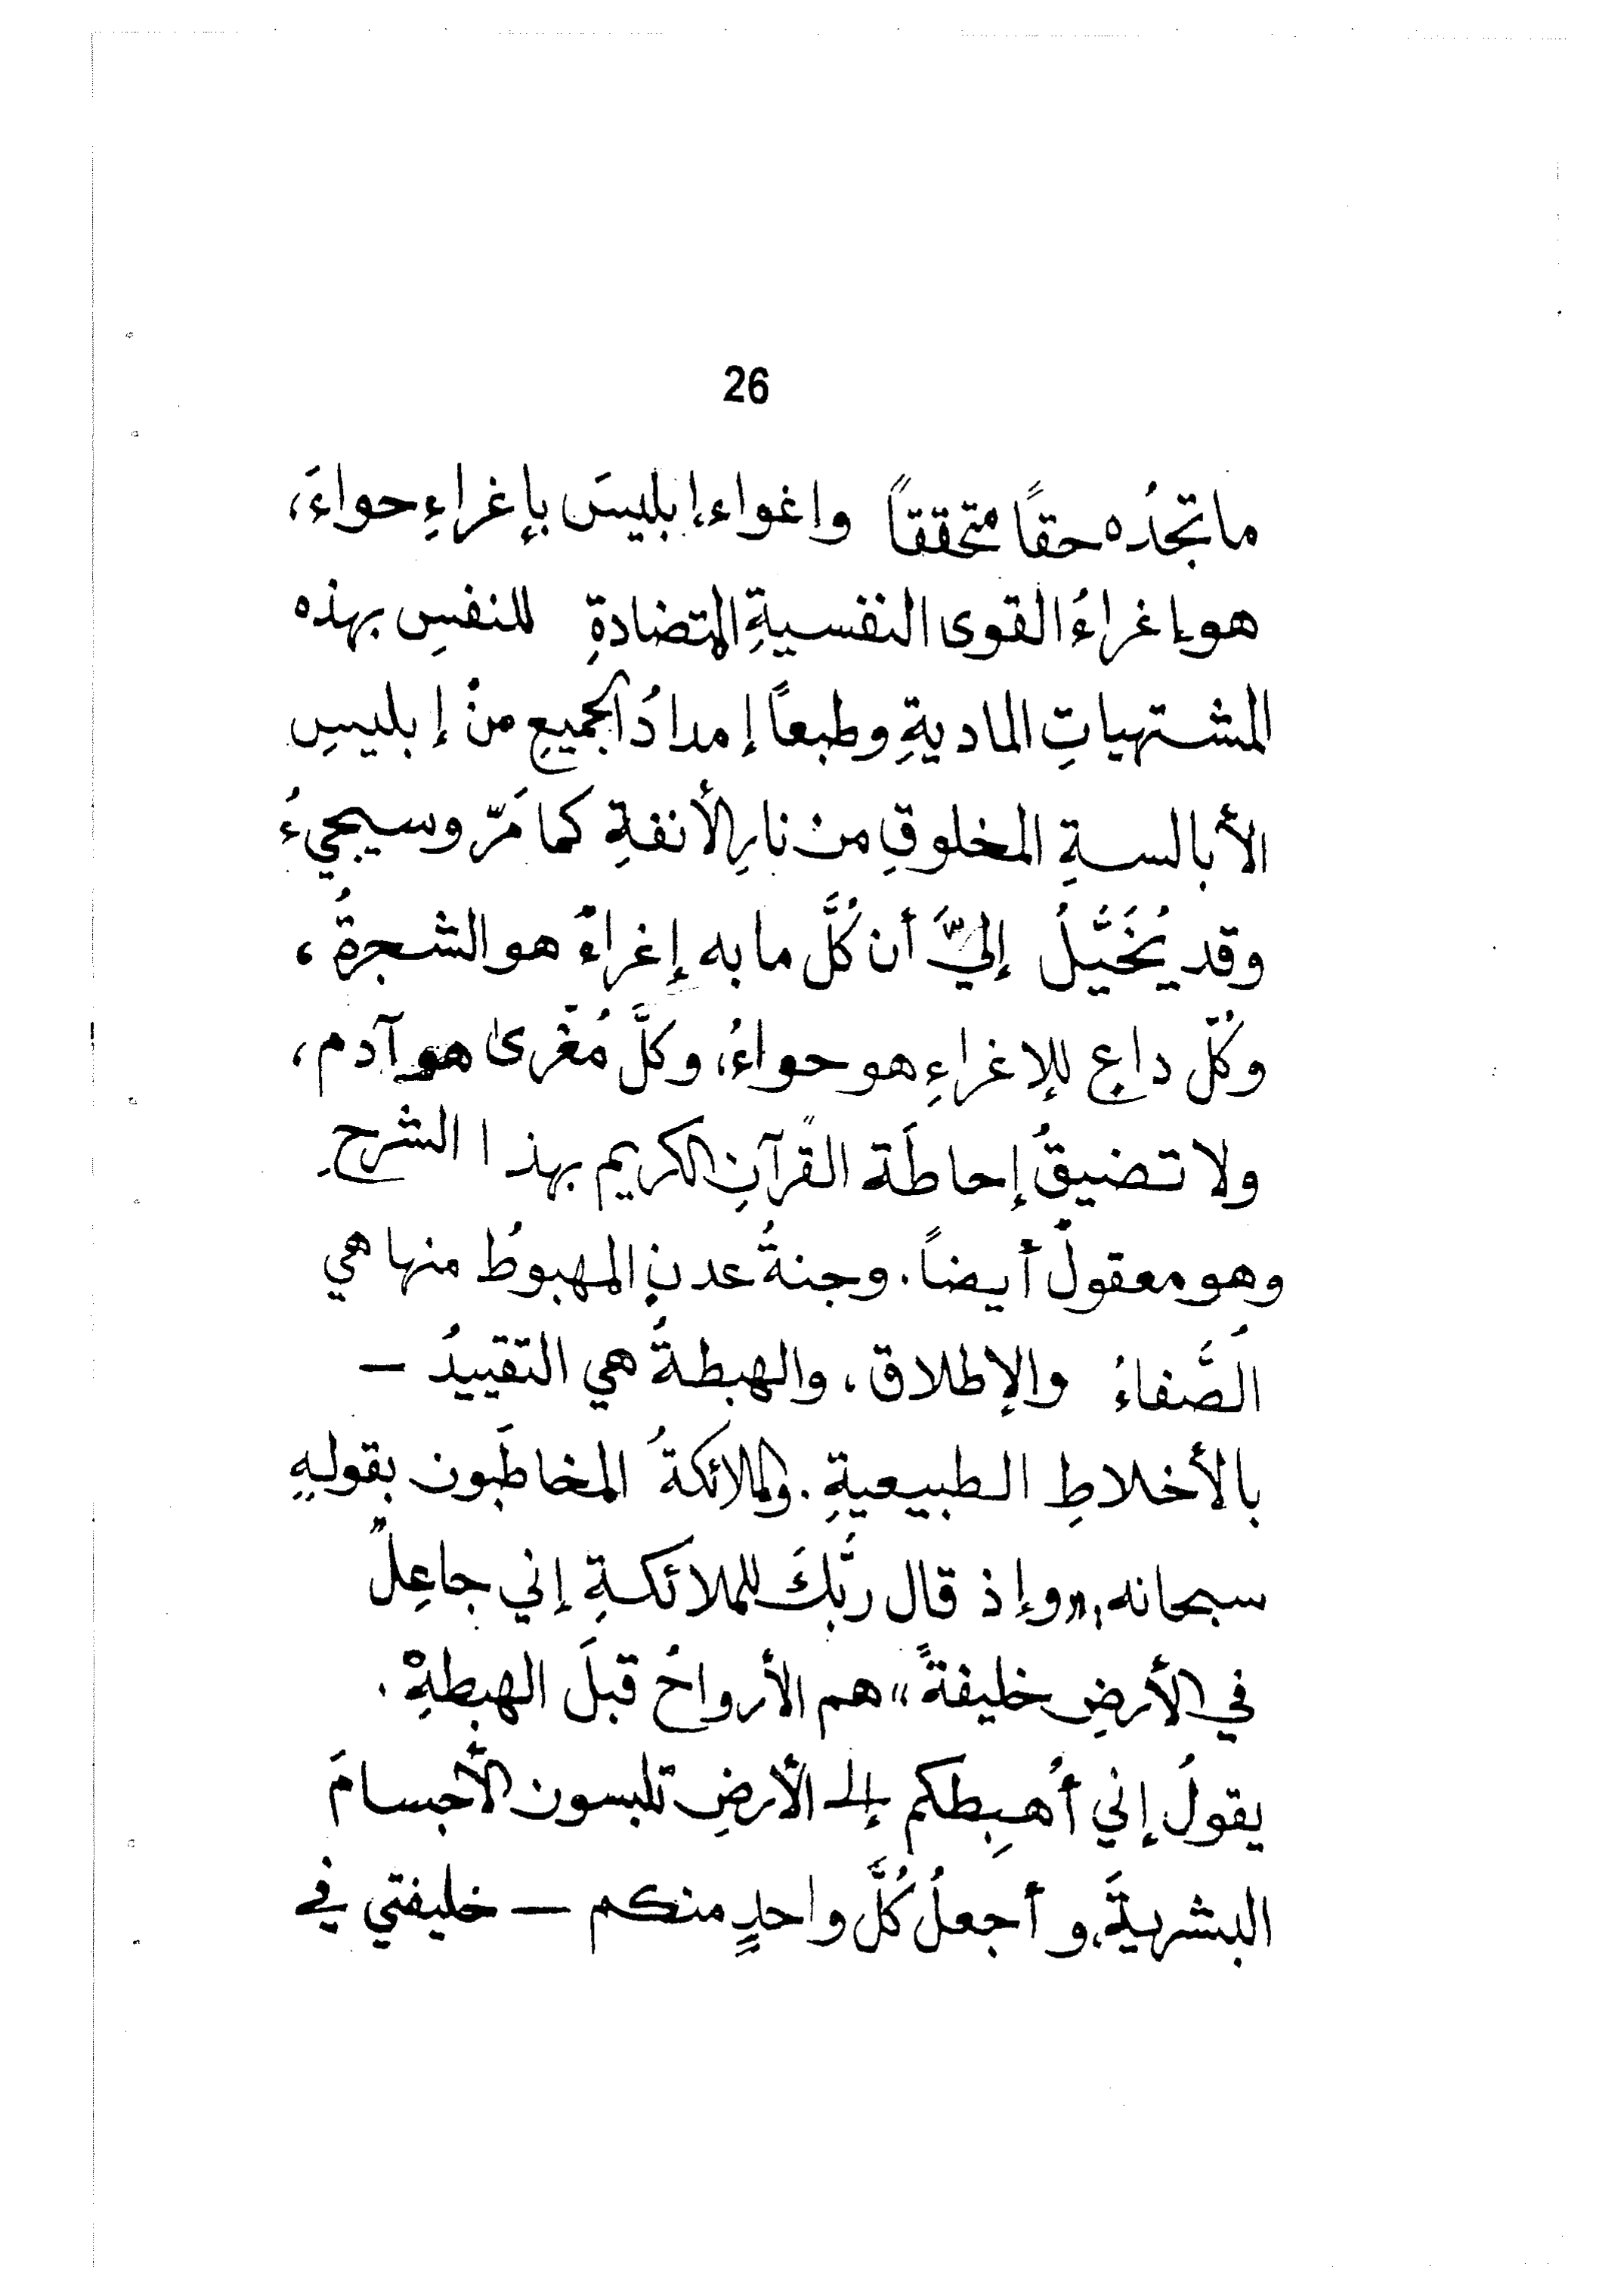 26
ما تجدُه حقاً متحققاً واغواء إبليسَ بإغراءِ حواءَ،
هو إغراءُ القوى النفسيةِ المتضادةِ للنفسِ بهذه
المشتهياتِ الماديةِ وطبعاً إمدادُ الجميعِ منْ إبليسِ
الأبالسةِ المخلوقِ من نارِ الأنفةِ كما مَرّ وسيجيءُ
وقد يُخَيَّلُ إليَّ أن كُلَّ ما به إغراءٌ هو الشجرةُ،
وكُلّ داعٍ للإغراءِ هو حواءُ، وكلَّ مُغْرىً هو آدم،
ولا تضيقُ إحاطَة القرآنِ الكريم بهذا الشرحِ
وهو معقولٌ أيضاً. وجنةُ عدنٍ المهبوطُ منها هي
الصَّفاءُ والإطلاق، والهبطةُ هي التقييدُ –
بالأخلاطِ الطبيعيةِ. والملائكةُ المخاطَبون بقولهِ
سبحانه، «وإذ قال ربَّكَ للملائكةِ إني جاعِلٌ
في الأرضِ خليفةً» هم الأرواحُ قبلَ الهبطةِ.
يقولُ إني أُهبِطكم إلى الأرضِ تلبسون الأجسامَ
البشريةَ، و أجعلُ كُلَّ واحدٍ منكم – خليفتي في